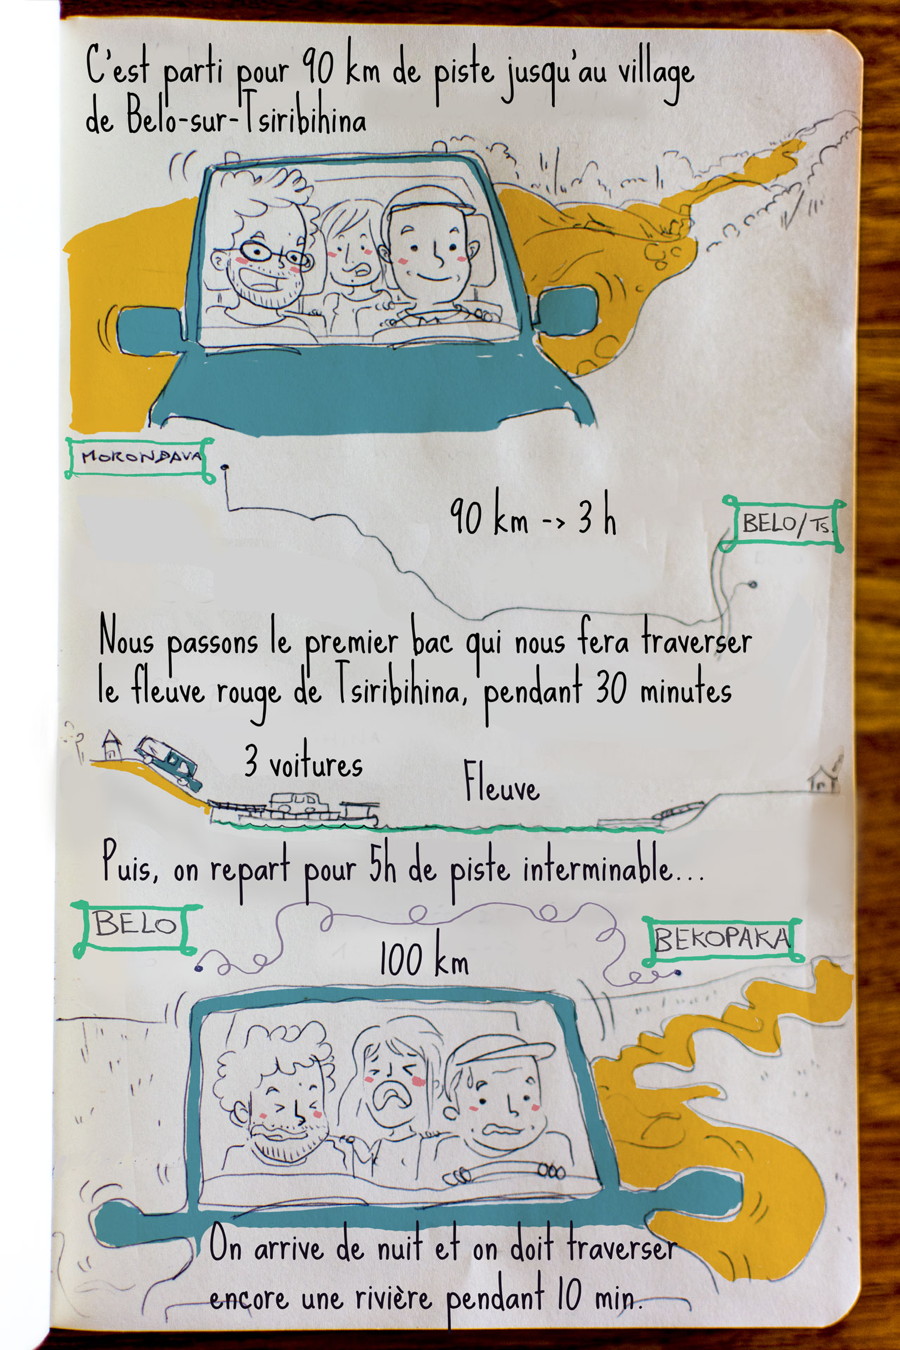 C'est parti pour 90 km de piste jusqu'au village
de Belo-sur-Tsiribihina
MORONDAVA
90 km -> 3 h
BELO/Ts.
Nous passons le premier bac qui nous fera traverser
le fleuve rouge de Tsiribihina, pendant 30 minutes
3 voitures
Fleuve
Puis, on repart pour 5h de piste interminable...
BELO
BEKOPAKA
100 km
On arrive de nuit et on doit traverser
encore une rivière pendant 10 min.